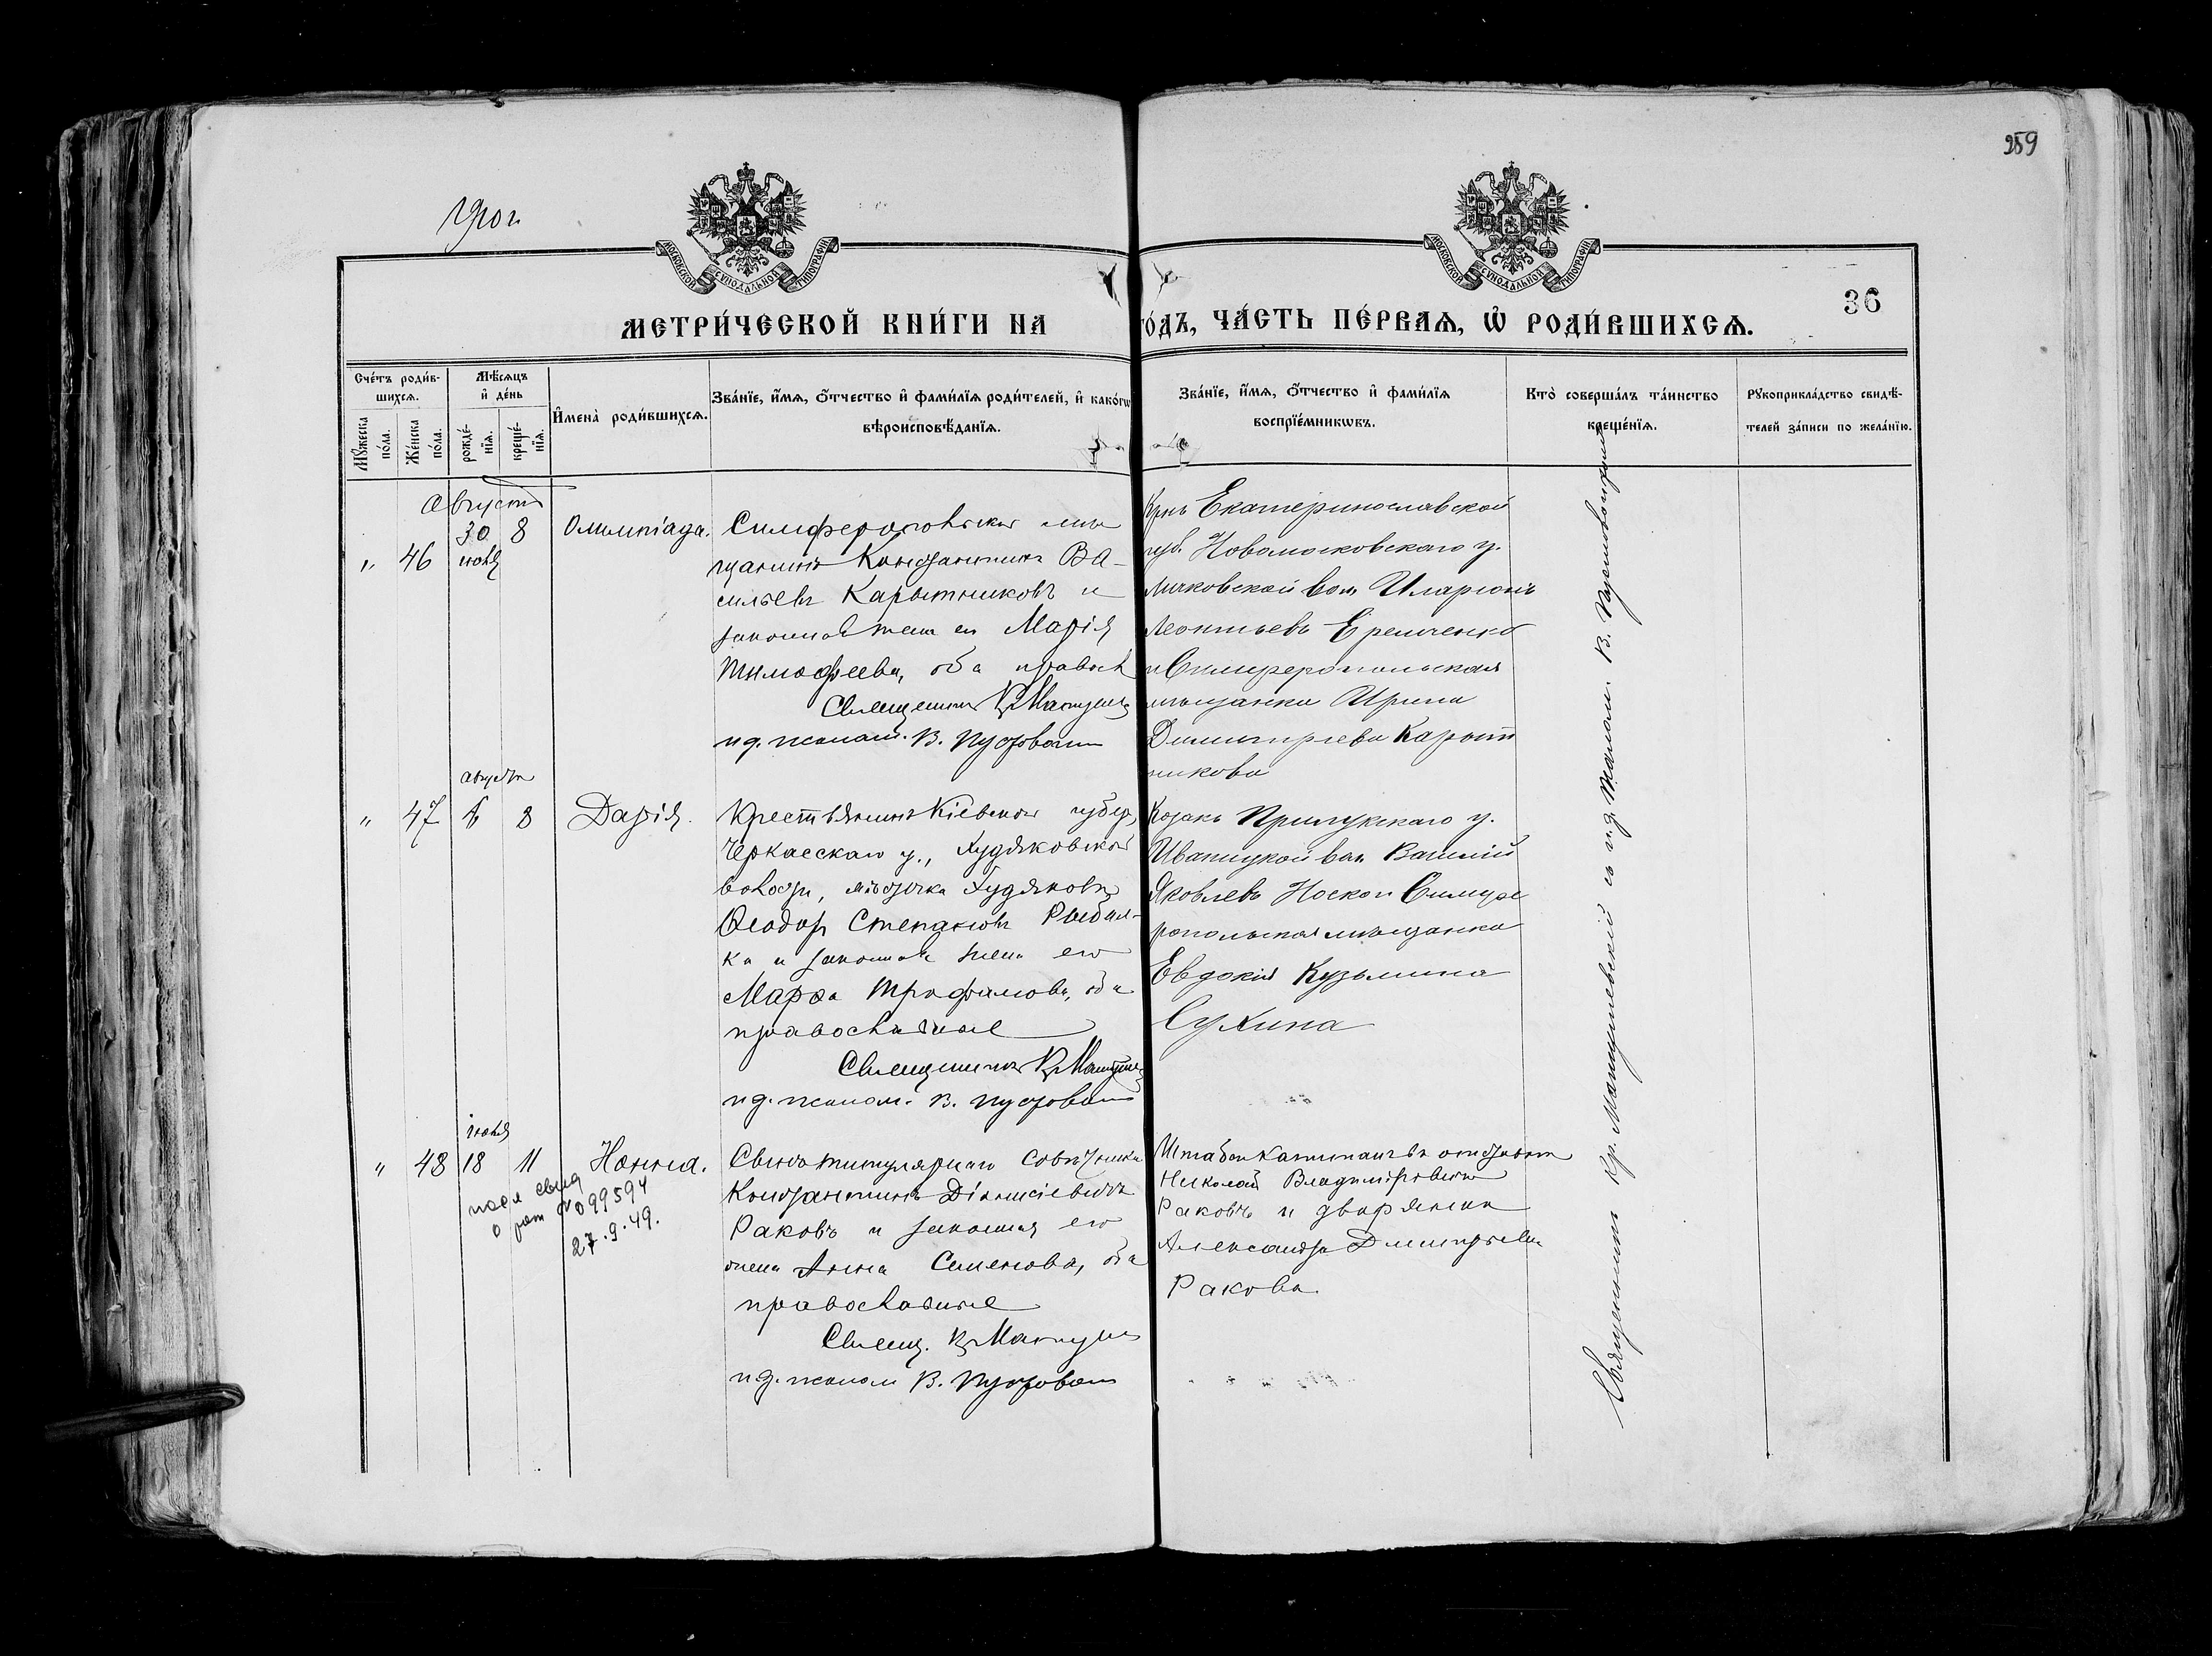 259
МОСКОВСКОЙ СѴНОДАЛЬНОЙ ТИПОГРАФІИ
МОСКОВСКОЙ СѴНОДАЛЬНОЙ ТИПОГРАФІИ
36
МЕТРИ́ЧЕСКОЙ КНИ́ГИ НА го́дъ, ЧА́СТЬ ПЕ́РВАѦ, Ѡ҆ РОДИ́ВШИХСѦ.
Сче́тъ роди́в-
шихсѧ.
Мꙋ́жеска
по́ла.
Же́нска
по́ла.
Мѣ́сѧцъ
и҆ де́нь
рожде́-
нїѧ.
креще́-
нїѧ.
И҆мена̀ роди́вшихсѧ.
Зва́нїе, и҆́мѧ, ѻ҆́тчество и҆ фами́лїѧ роди́телей, и҆ како́гѡ
вѣроисповѣ́данїѧ.
Зва́нїе, и҆́мѧ, ѻ҆́тчество и҆ фами́лїѧ
воспрїе́мникѡвъ.
Кто̀ соверша́лъ та́инство
креще́нїѧ.
Рꙋкоприкла́дство свидѣ́-
телей за́писи по жела́нїю.
Августа
" 46
30 8
іюля
Олимпіада.
Симферопольскій мѣ
щанинъ Константинъ Ва-
сильевъ Карытниковъ и
законная жена его Марія
Тимофеева, оба правосл
Священникъ Кр Матуше
и д. псалом. В. Пустовой
Крнъ Екатеринославской
губ. Новомосковскаго у.
Личковской вол. Иларіонъ
Леонтьевъ Еремченко
и Симферопольская
мѣщанка Ирина
Димитріева Карыт
никова
августа
" 47
6 8
Дарія.
Крестьянинъ Кіевской губер,
Черкасскаго у., Худяковской
волости, мѣстечка Худяковъ
Ѳеодоръ Степановъ Рыбал-
ка и законная жена его
Марѳа Трофимова, оба
православные
Священникъ Кр Матуше
и д. псалом. В. Пустовой
Козакъ Прилукскаго у.
Иваницкой вол Василій
Яковлевъ Носкои Симфе
ропольская мѣщанка
Евдокія Кузьмина
Сухина
іюля
" 48
18 11
Нонна.
посл свид
о рож № 099594
27.9.49.
Сынъ титулярнаго Совѣтника
Константинъ Діонисіевичъ
Раковъ и законная его
жена Анна Семенова, оба
православные
Свящ. Кр Матуше
и д. псалом В. Пустовой
Штабсъ Капитанъ въ отставкѣ
Николай Владиміровичъ
Раковъ и дворянка
Александра Дмитріева
Ракова.
Священникъ Кр. Матушевскій съ и.д. псалом. В. Пустовойтомъ